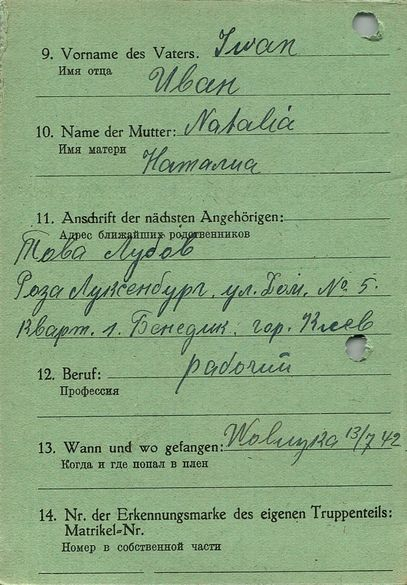 9. Vorname des Vaters. Iwan
Имя отца
Иван
10. Name der Mutter: Natalia
Имя матери
Наталиа
11. Anschrift der nächsten Angehörigen:
Адрес ближайших родственников
Това Лубов
Роза Луксенбург, ул. Дом. № 5.
Кварт. 1. Бенедик. гор. Киев
12. Beruf: рабочий
Профессия
13. Wann und wo gefangen: 13/7 42
Когда и где попал в плен
14. Nr. der Erkennungsmarke des eigenen Truppenteils:
Matrikel-Nr.
Номер в собственной части